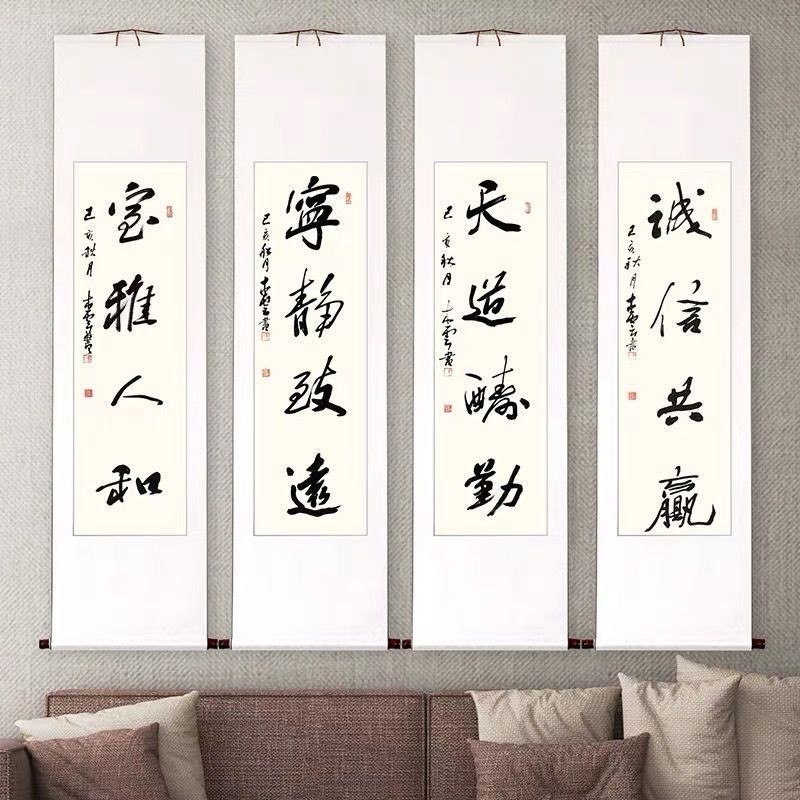 室雅人和
己亥秋月
寧静致遠
己亥秋月
天道醻勤
己亥秋月
诚信共贏
己亥秋月